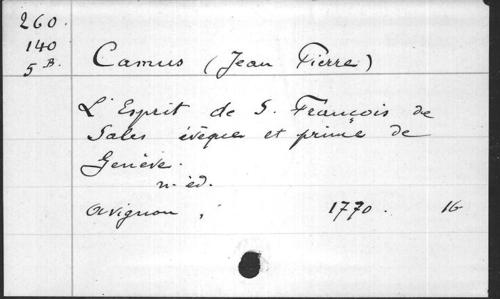 260.
140
5 B.
Camus (Jean Pierre)
L'Esprit de S. François de
Sales évêque et prince de
Genève.
n. éd.
Avignon, 1770. 16